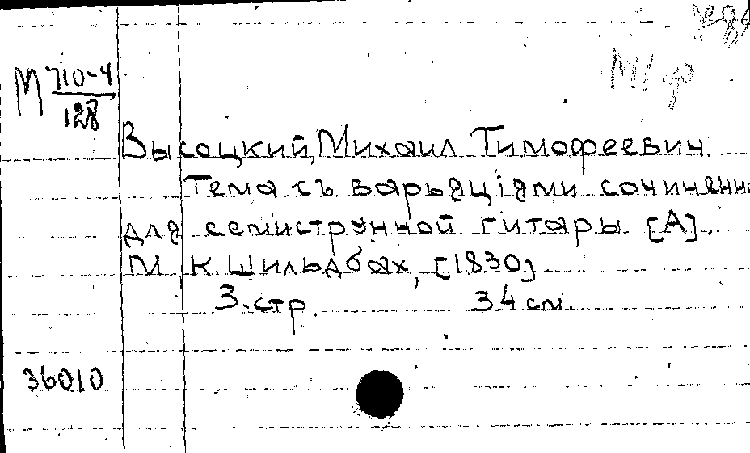 М 710-4
128
М/ф
Высоцкий, Михаил Тимофеевич.
Тема съ варьяціями сочиненн
для семиструнной гитары [А].
М, К Шильдбах, [1830]
3.стр. 34 см.
36010